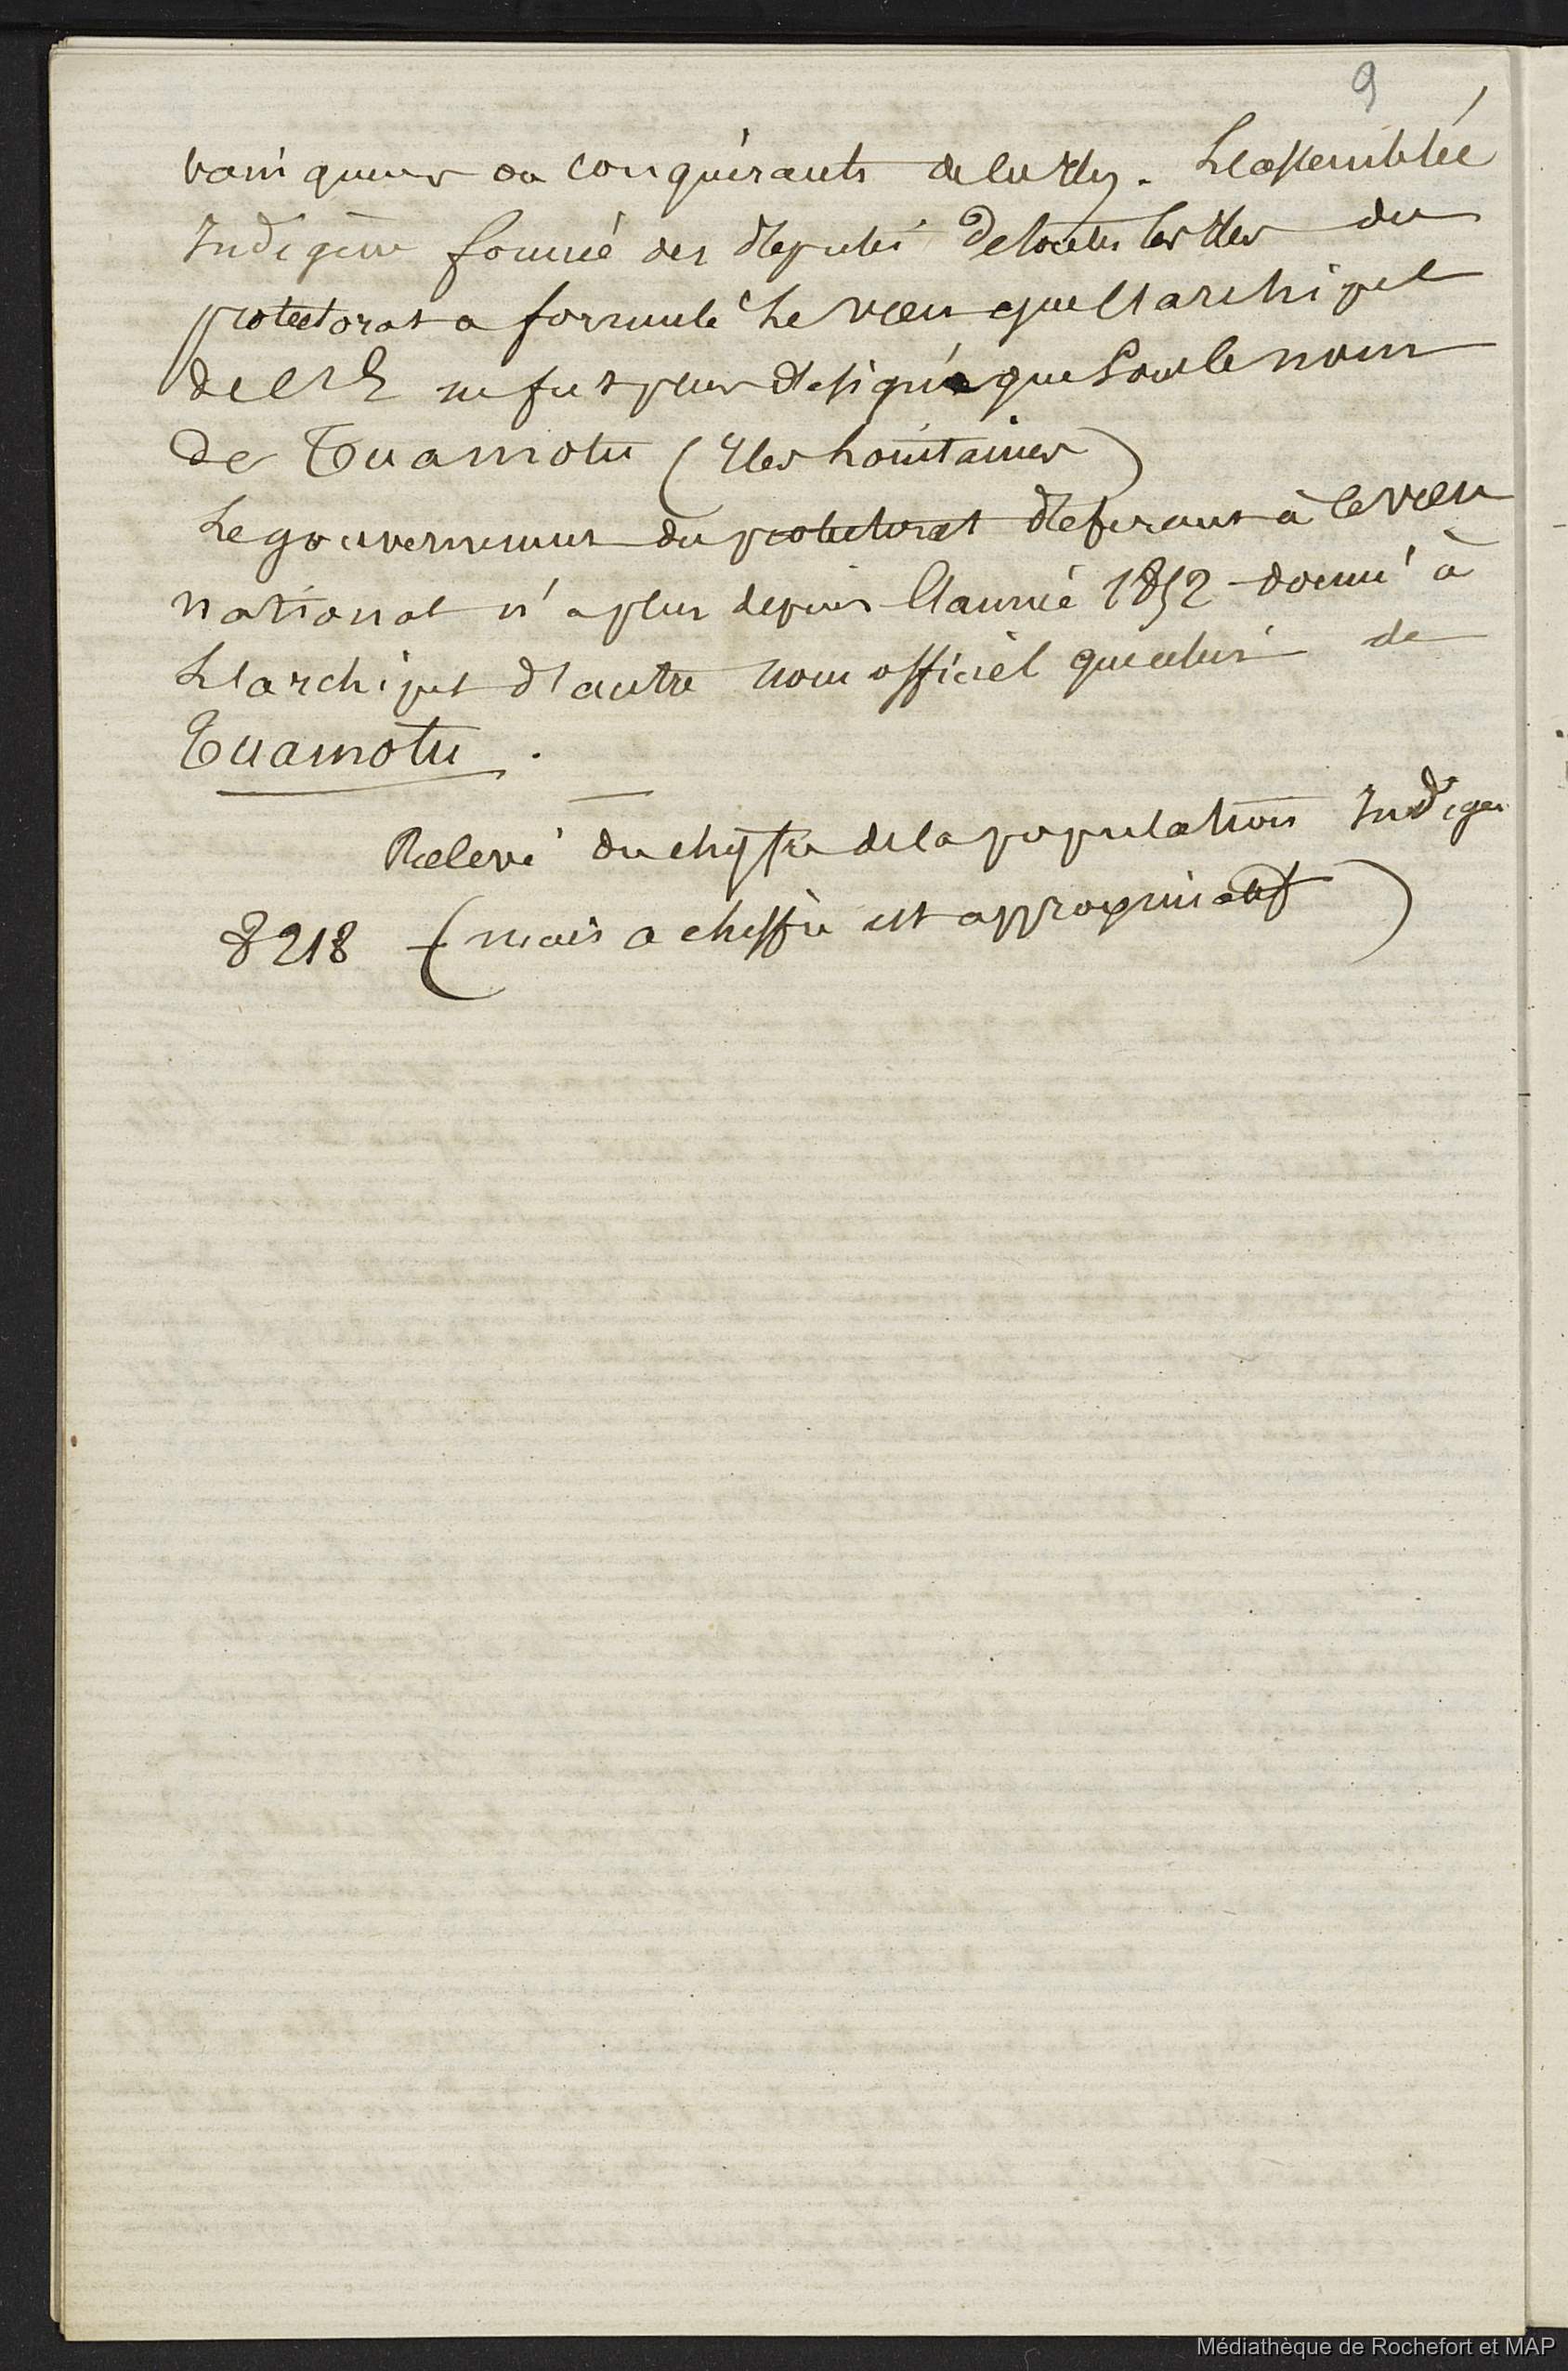 9
vainqueurs ou conquérants de lu Iles. L'assemblée
Indigène formée des députés de toutes les Iles du
protectorat a formulé le voeu que l'archipel
de l'E ne fut plus désigné que sous le nom
de Tuamotu (Iles Lointaines)
Le gouvernement du protectorat déferant à ce voeu
national n'a plus depuis l'année 1852 donné à
L'archipel d'autre nom officiel que celui de
Tuamotu .
Relevé du chiffre de la population Indigen
8218 (mais a chiffre est approximatif)
Médiathèque de Rochefort et MAP